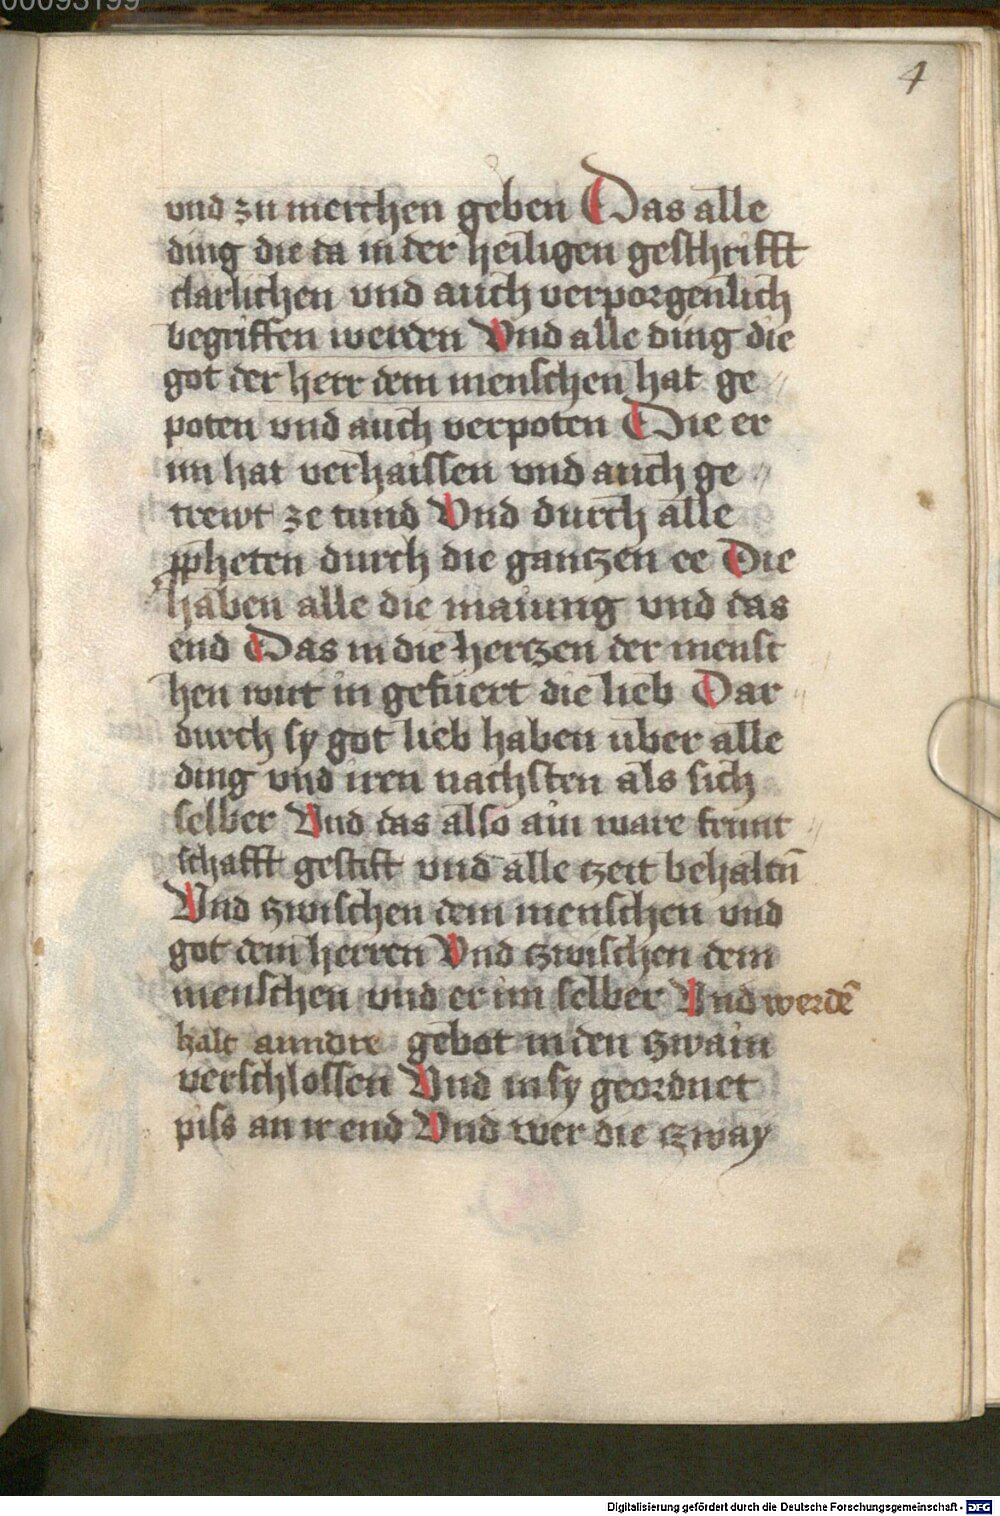 00093199
4
vnd zu merchen geben Das alle
ding die da in der heiligen geschrifft
clarlichen vnd auch verporgenlich
begriffen werden Vnd alle ding die
got der herr dem menschen hat ge
poten vnd auch verpoten Die er
im hat verhaissen vnd auch ge
trewt ze tund Vnd durch alle
ppheten durch die gantzen ee Die
haben alle die mainung vnd das
end Das in die hertzen der mensc
hen wirt in gefüert die lieb Dar
durch sy got lieb haben über alle
ding vnd iren nachsten als sich
selber Vnd das also ain ware frunt
schafft gestift vnd alle tzeit behaltn̄
Vnd zwischen dem menschen vnd
got dem herren Vnd tzwischen dem
menschen vnd er im selber Vnd werdē
halt anndre gebot in den zwain
verschlossen Vnd in sy geordnet
piss an ir end Vnd wer die tzway
Digitalisierung gefördert durch die Deutsche Forschungsgemeinschaft - DFG